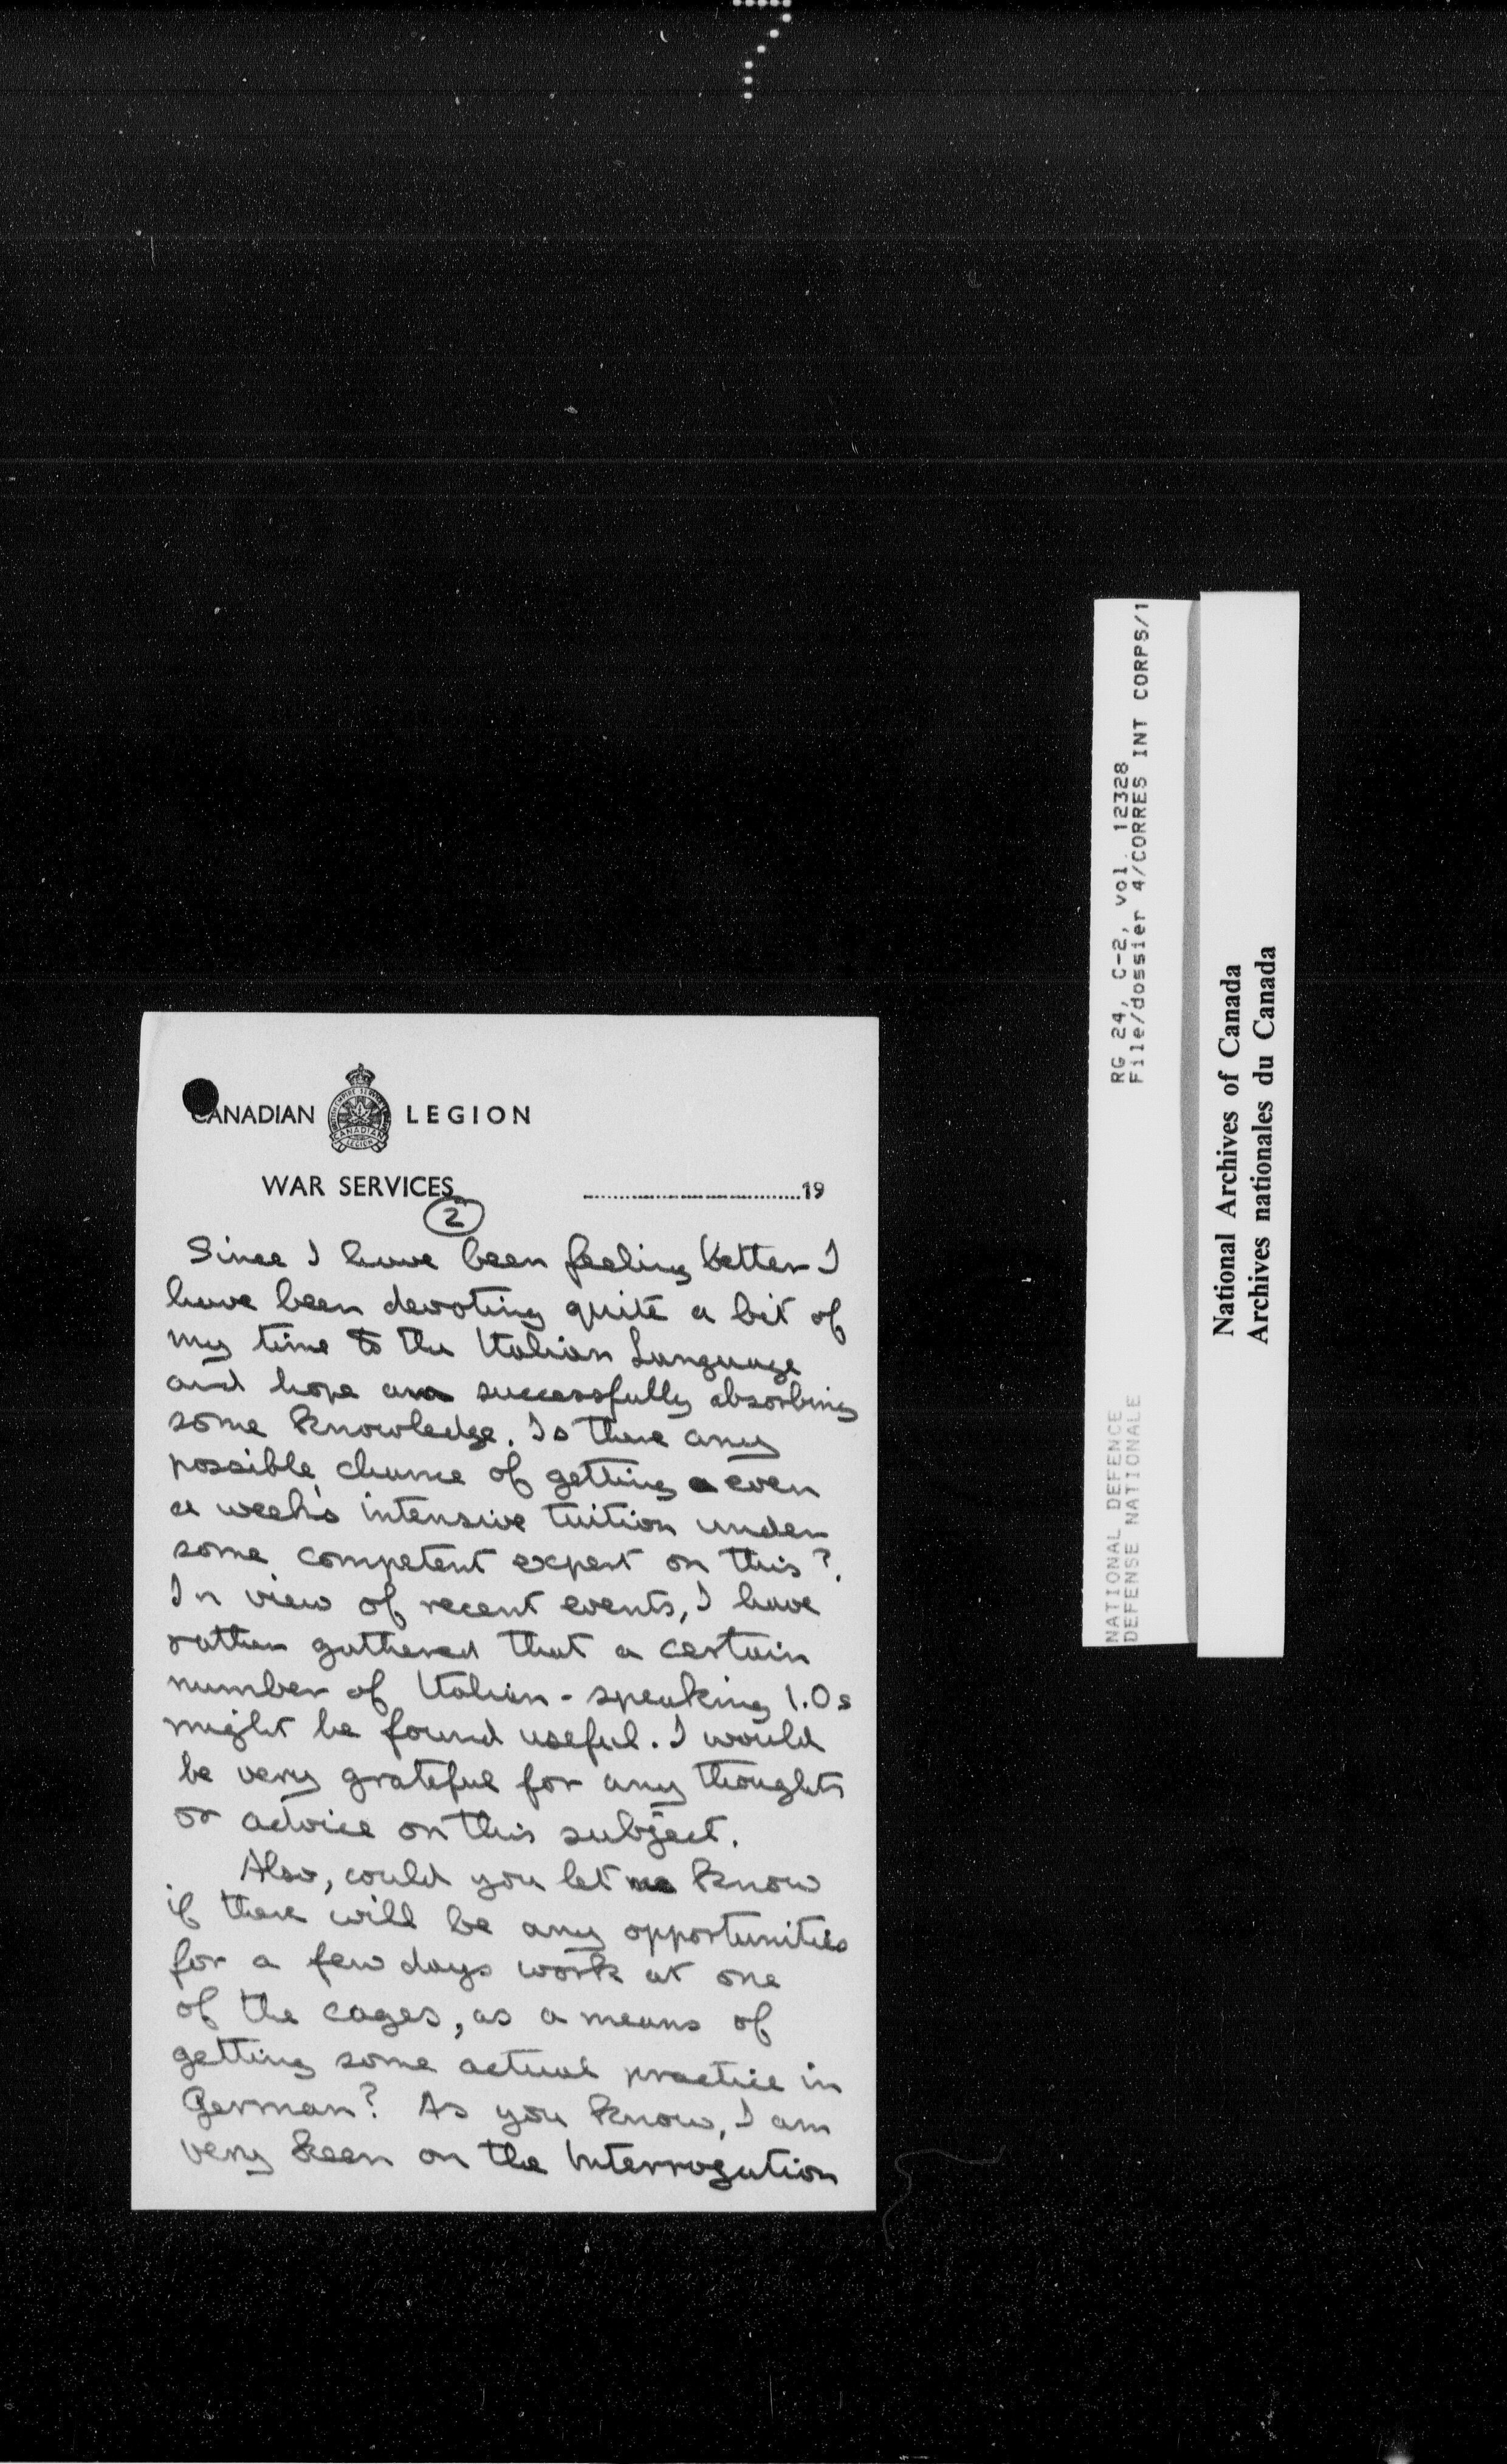 CANADIAN LEGION
WAR SERVICES
..............................19
2
Since I have been feeling better I
have been devoting quite a bit of
my time to the Italian Language
and hope am successfully absorbing
some knowledge. Is there any
possible chance of getting even
a week's intensive tuition under
some competent expert on this?
In view of recent events, I have
rather gathered that a certain
number of Italian-speaking I.Os
might be found useful. I would
be very grateful for any thoughts
or advice on this subject.
Also, could you let me know
if there will be any opportunities
for a few days work at one
of the cages, as a means of
getting some actual practice in
German? As you know, I am
very keen on the Interrogation
RG 24, C-2, vol. 12328
File/dossier 4/CORRES INT CORPS/1
NATIONAL DEFENCE
DEFENSE NATIONALE
National Archives of Canada
Archives nationales du Canada